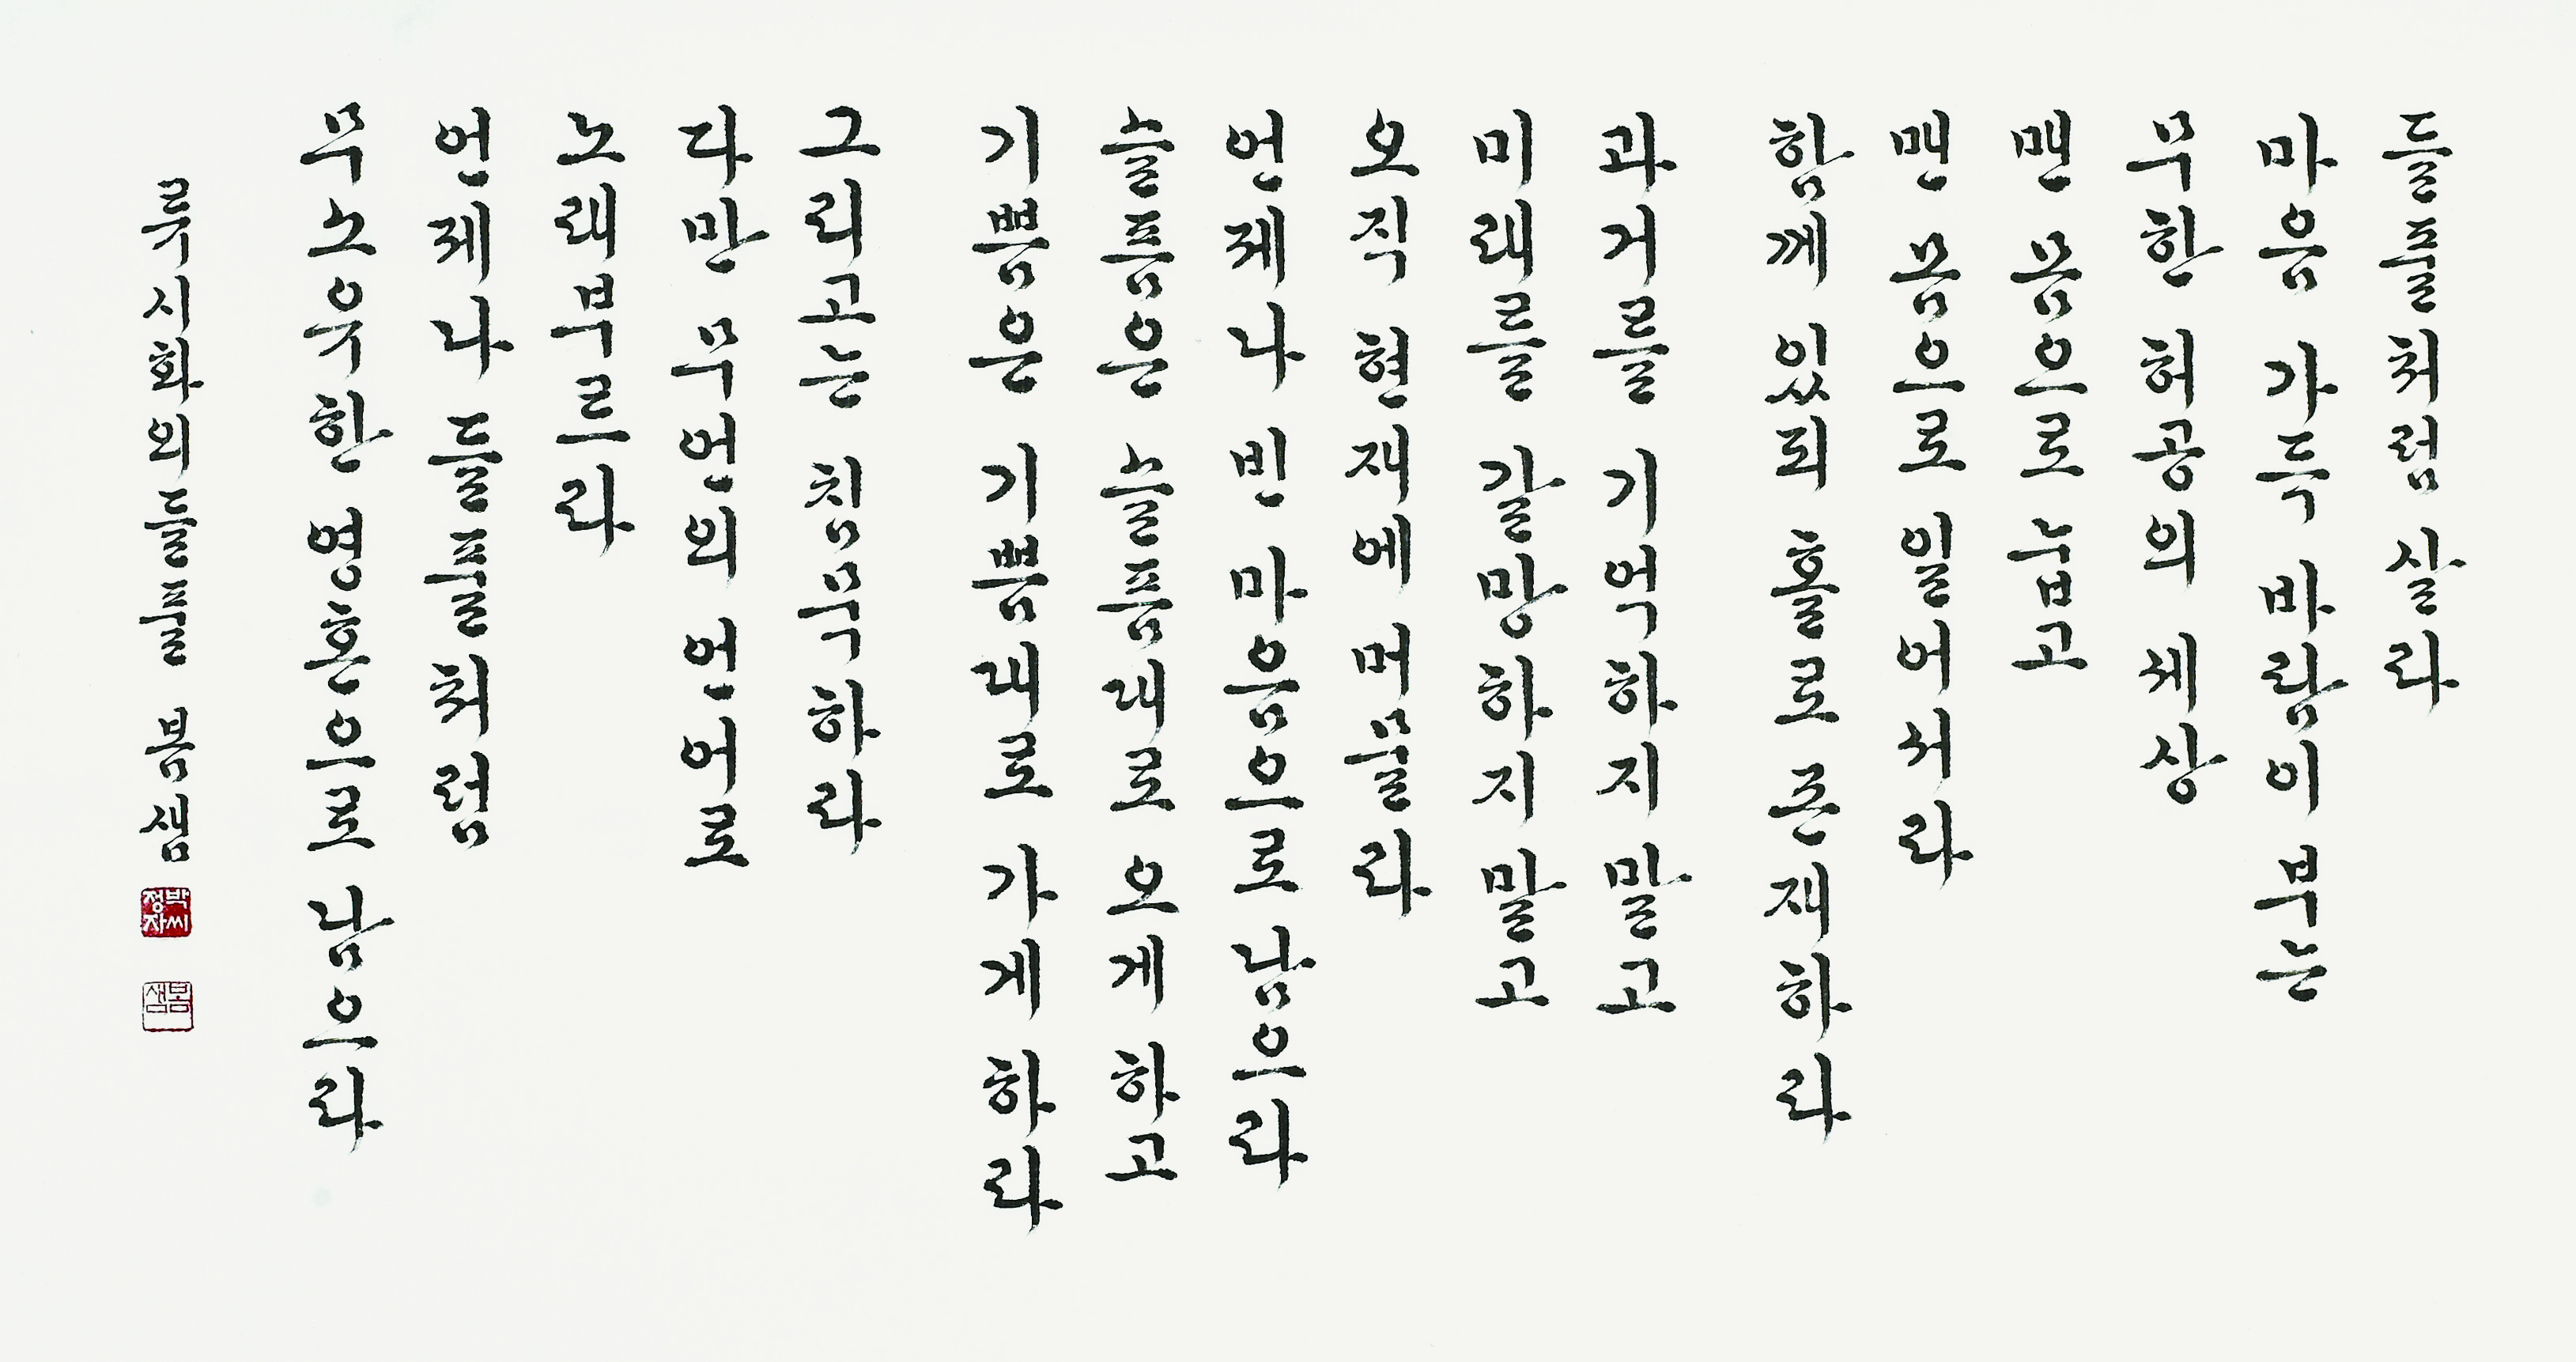 들풀처럼 살라
마음 가득 바람이 부는
무한 허공의 세상
맨 몸으로 눕고
맨 몸으로 일어서라
함께 있되 홀로 존재하라
과거를 기억하지 말고
미래를 갈망하지 말고
오직 현재에 머물라
언제나 빈 마음으로 남으라
슬픔은 슬픔대로 오게 하고
기쁨은 기쁨대로 가게 하라
그리고는 침묵하라
다만 무언의 언어로
노래부르라
언제나 들풀처럼
무소유한 영혼으로 남으라
류시화의 들풀 봄샘
박씨정자
봄샘